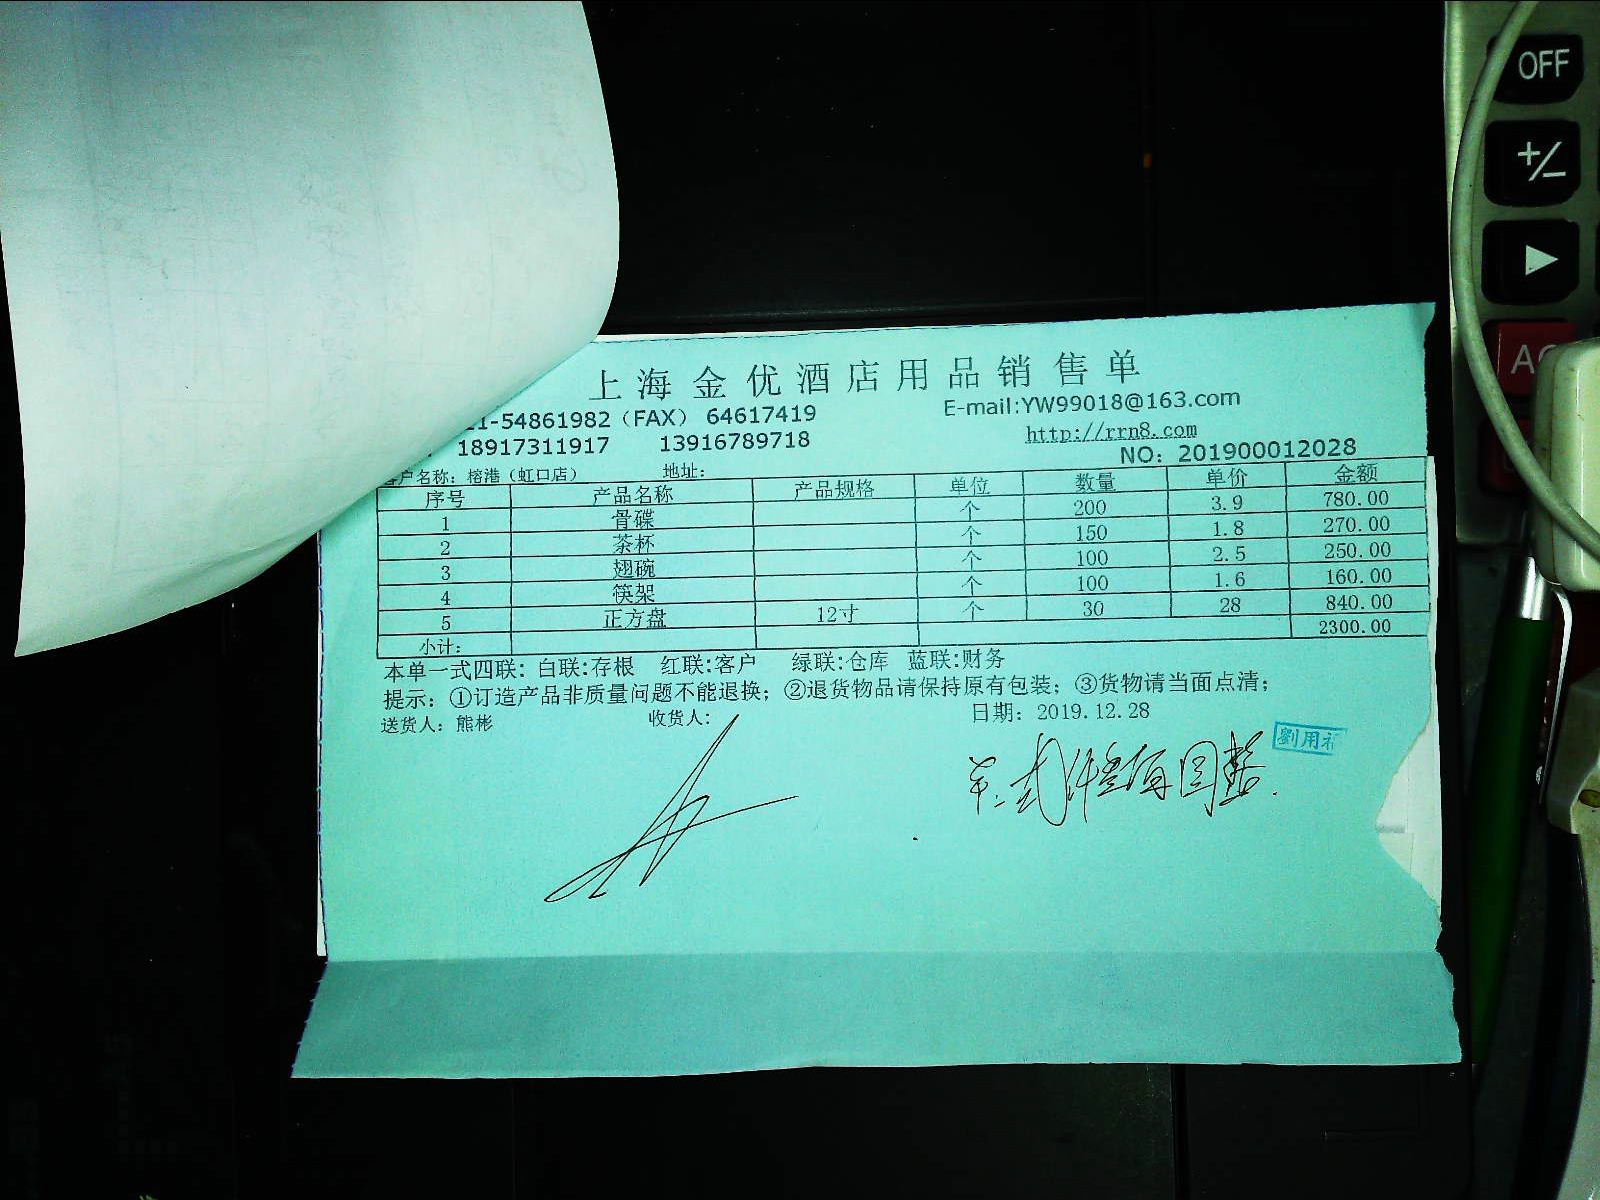 上海金优酒店用品销售单
21-54861982（FAX） 64617419 E-mail:YW99018@163.com
18917311917 13916789718 http://rrn8.com
NO：201900012028
客户名称：榕港（虹口店） 地址：
序号 产品名称 产品规格 单位 数量 单价 金额
1 骨碟 个 200 3.9 780.00
2 茶杯 个 150 1.8 270.00
3 翅碗 个 100 2.5 250.00
4 筷架 个 100 1.6 160.00
5 正方盘 12寸 个 30 28 840.00
小计： 2300.00
本单一式四联：白联:存根 红联:客户 绿联:仓库 蓝联:财务
提示：①订造产品非质量问题不能退换；②退货物品请保持原有包装；③货物请当面点清；
送货人：熊彬 收货人： 日期：2019.12.28
劉用
仟叁佰圆整
OFF
+/-
▶
AC